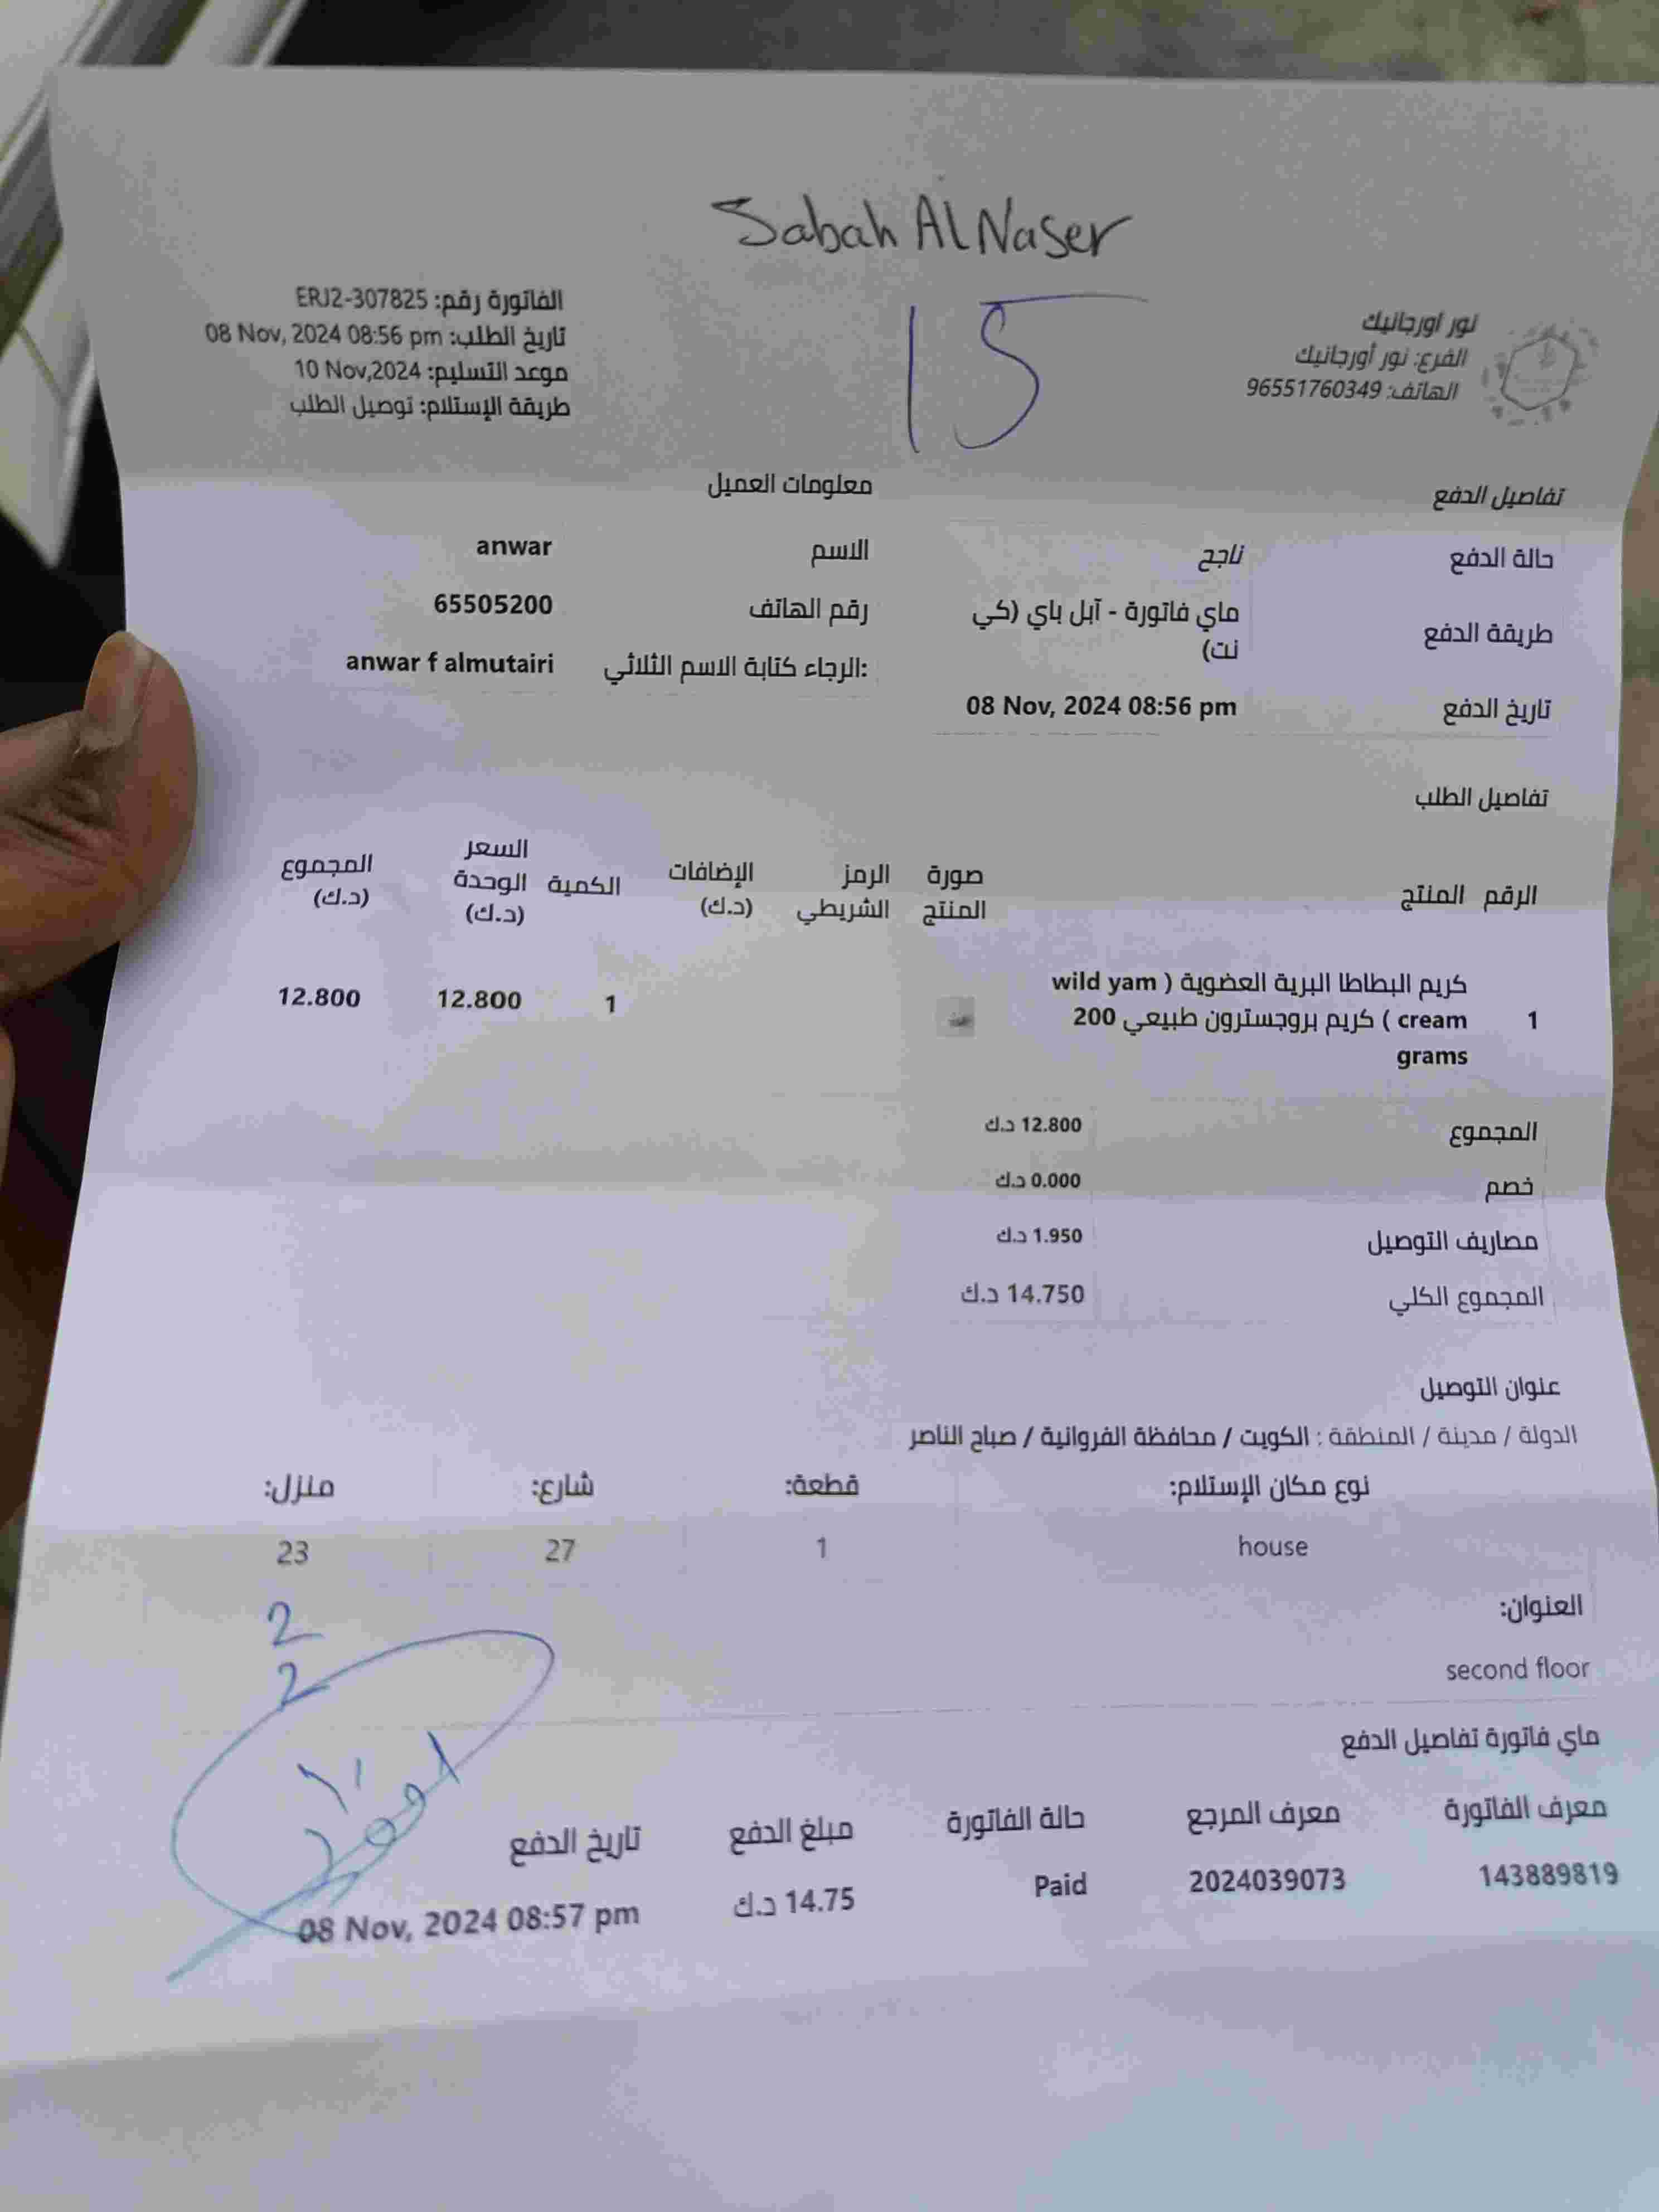 Sabah Al Naser
15
نور اورجانيك
الفرع: نور أورجانيك
الهاتف: 96551760349
الفاتورة رقم: ERJ2-307825
تاريخ الطلب: 08 Nov, 2024 08:56 pm
موعد التسليم: 10 Nov,2024
طريقة الإستلام: توصيل الطلب
تفاصيل الدفع
حالة الدفع ناجح
طريقة الدفع ماي فاتورة - آبل باي (كي
نت)
تاريخ الدفع 08 Nov, 2024 08:56 pm
معلومات العميل
الاسم anwar
رقم الهاتف 65505200
الرجاء كتابة الاسم الثلاثي: anwar f almutairi
تفاصيل الطلب
الرقم المنتج صورة المنتج الرمز الشريطي الإضافات (د.ك) الكمية السعر الوحدة (د.ك) المجموع (د.ك)
1 كريم البطاطا البرية العضوية ( wild yam
cream ) كريم بروجسترون طبيعي 200
grams
1 12.800 12.800
المجموع 12.800 د.ك
خصم 0.000 د.ك
مصاريف التوصيل 1.950 د.ك
المجموع الكلي 14.750 د.ك
عنوان التوصيل
الدولة / مدينة / المنطقة : الكويت / محافظة الفروانية / صباح الناصر
نوع مكان الإستلام: قطعة: شارع: منزل:
house 1 27 23
العنوان:
second floor
2
2
ماي فاتورة تفاصيل الدفع
معرف الفاتورة معرف المرجع حالة الفاتورة مبلغ الدفع تاريخ الدفع
143889819 2024039073 Paid 14.75 د.ك 08 Nov, 2024 08:57 pm